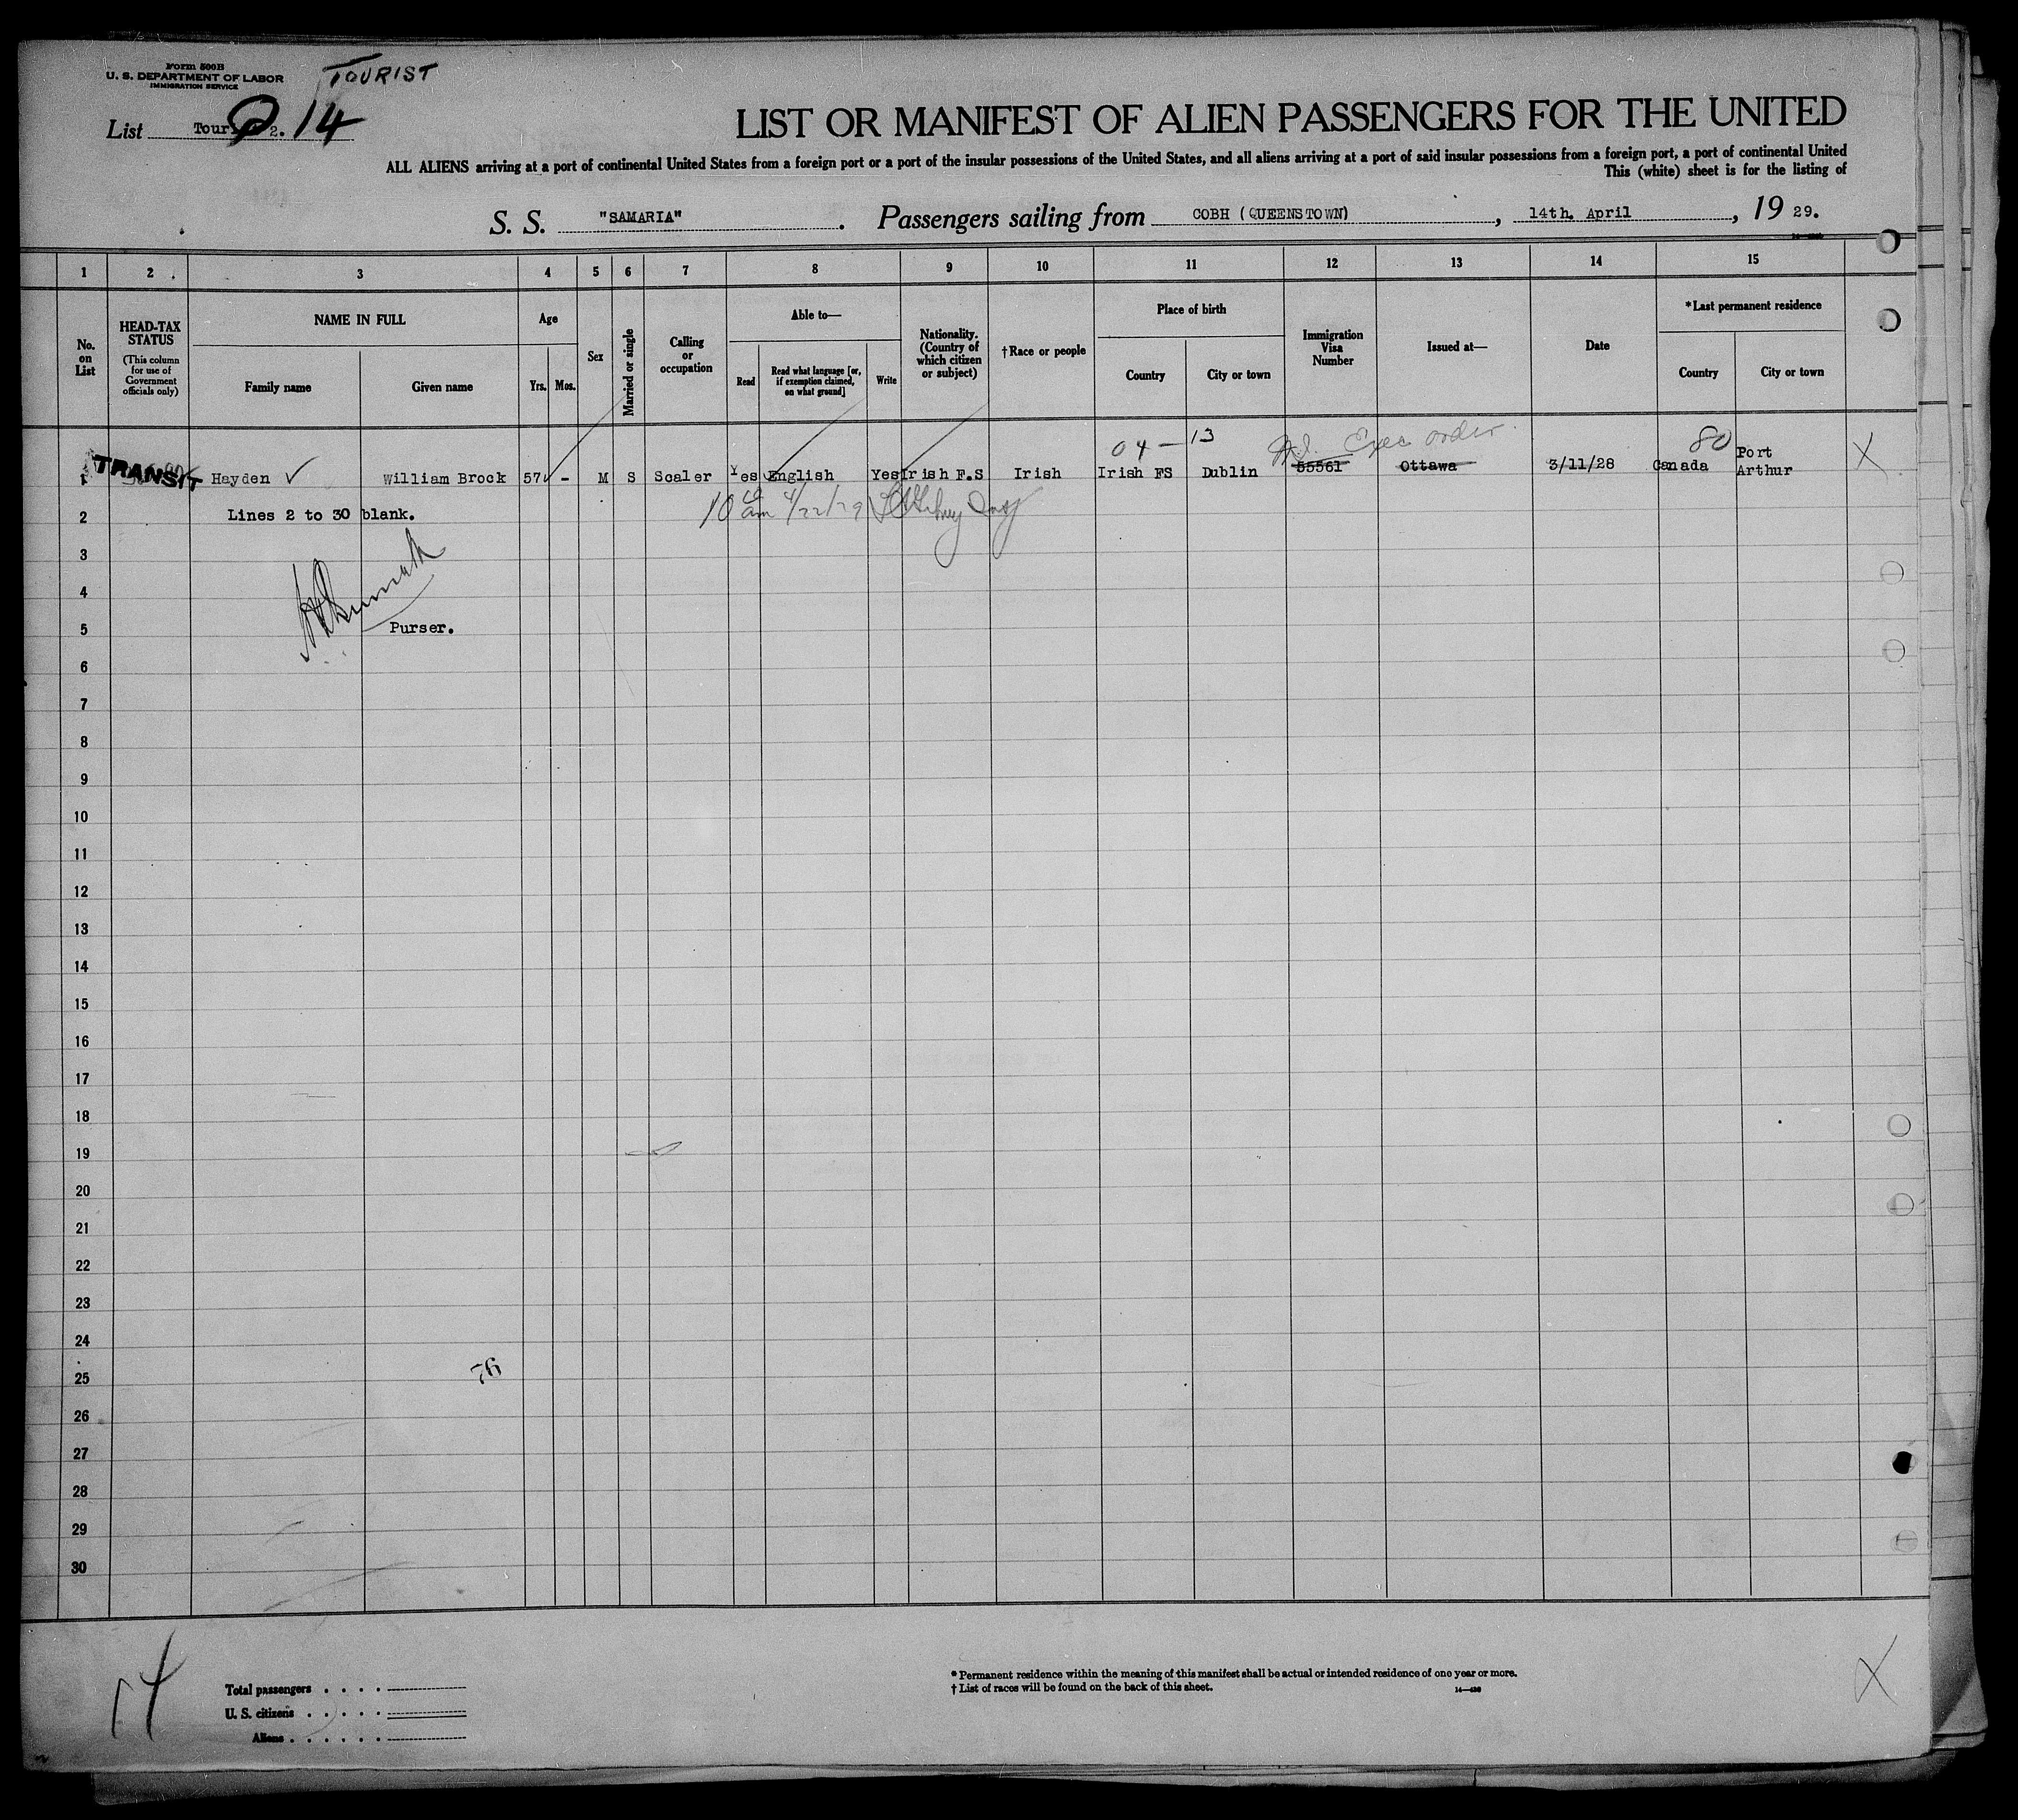 Form 500B
U. S. DEPARTMENT OF LABOR
IMMIGRATION SERVICE
TOURIST
List Tour 2. 14
LIST OR MANIFEST OF ALIEN PASSENGERS FOR THE UNITED
ALL ALIENS arriving at a port of continental United States from a foreign port or a port of the insular possessions of the United States, and all aliens arriving at a port of said insular possessions from a foreign port, a port of continental United
This (white) sheet is for the listing of
S. S. "SAMARIA". Passengers sailing from COBH (QUEENSTOWN), 14th. April, 19 29.
1 2 3 4 5 6 7 8 9 10 11 12 13 14 15
No. on List
HEAD-TAX STATUS
(This column for use of Government officials only)
NAME IN FULL
Family name
Given name
Age
Yrs.
Mos.
Sex
Married or single
Calling or occupation
Able to—
Read
Read what language [or, if exemption claimed, on what ground]
Write
Nationality. (Country of which citizen or subject)
†Race or people
Place of birth
Country
City or town
Immigration Visa Number
Issued at—
Date
*Last permanent residence
Country
City or town
04 — 13 Exec order 80
1 TRANSIT Hayden ✓ William Brock 57 - M S Scaler Yes English Yes Irish F.S Irish Irish FS Dublin 55561 Ottawa 3/11/28 Canada Port Arthur X
2 Lines 2 to 30 blank. 10 am 4/22/29
3
4
5 Purser.
6
7
8
9
10
11
12
13
14
15
16
17
18
19
20
21
22
23
24
25 76
26
27
28
29
30
14
Total passengers
U. S. citizens
Aliens
* Permanent residence within the meaning of this manifest shall be actual or intended residence of one year or more.
† List of races will be found on the back of this sheet.
X